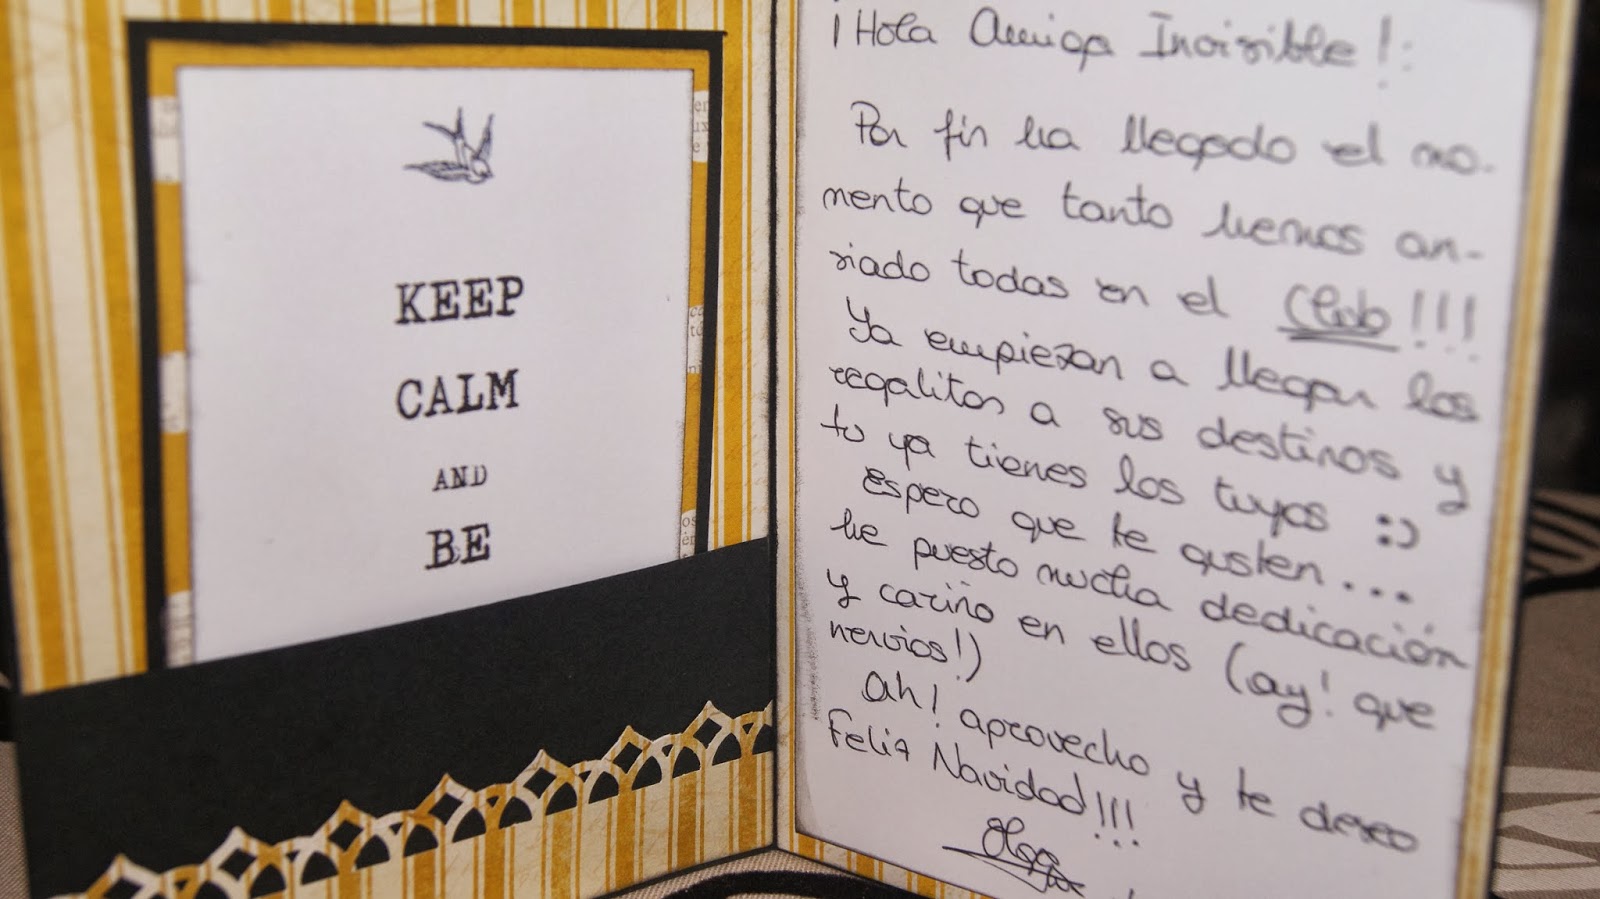 KEEP
CALM
AND
BE
¡Hola Amiga Invisible!:
Por fin ha llegado el mo-
mento que tanto hemos an-
siado todas en el Club!!!
Ya empiezan a llegar los
regalitos a sus destinos y
tu ya tienes los tuyos :)
Espero que te gusten....
he puesto mucha dedicación
y cariño en ellos (ay! que
nervios!)
Ah! aprovecho y te deseo
Feliz Navidad!!!
Olga